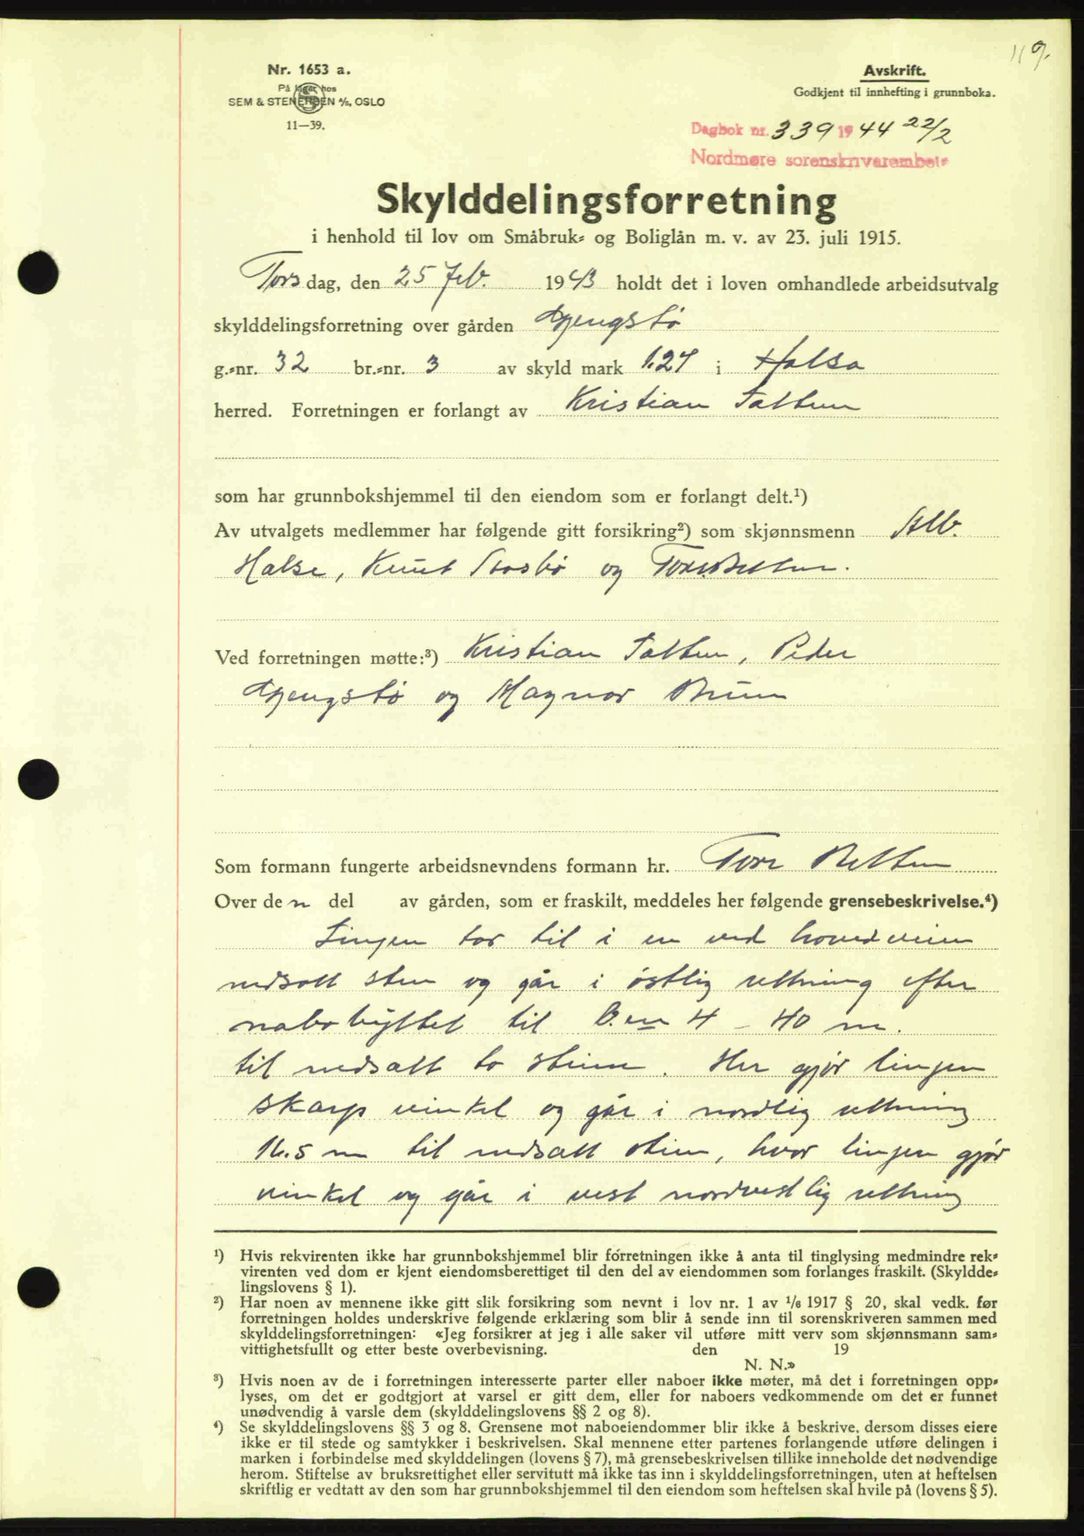 119.
Nr. 1653 a.
På lager hos
SEM & STENERSEN A/S, OSLO
11—39.
Avskrift.
Godkjent til innhefting i grunnboka.
Dagbok nr. 339 1944 22/2
Nordmøre sorenskriverembete
Skylddelingsforretning
i henhold til lov om Småbruk- og Boliglån m. v. av 23. juli 1915.
Torsdag, den 25 Feb. 1943 holdt det i loven omhandlede arbeidsutvalg
skylddelingsforretning over gården Gjengstø
g.-nr. 32 br.-nr. 3 av skyld mark 1.27 i Halsa
herred. Forretningen er forlangt av Kristian Sattem
som har grunnbokshjemmel til den eiendom som er forlangt delt.¹)
Av utvalgets medlemmer har følgende gitt forsikring²) som skjønnsmenn Alb.
Halse, Knut og Tore Betten.
Ved forretningen møtte:³) Kristian Sattem, Peder
Gjengstø og Magnar Bruun
Som formann fungerte arbeidsnevndens formann hr. Tore Betten
Over den del av gården, som er fraskilt, meddeles her følgende grensebeskrivelse.⁴)
Linjen tar til i en ved hovedveien
nedsatt sten og går i østlig rettning efter
nabobyttet til B. nr 4 – 40 m.
til nedsatt to stene. Her gjør linjen
skarp vinkel og går i nordlig rettning
16.5 m til nedsatt sten, hvor linjen gjør
vinkel og går i vest nordvestlig rettning
¹) Hvis rekvirenten ikke har grunnbokshjemmel blir forretningen ikke å anta til tinglysing medmindre rek-
virenten ved dom er kjent eiendomsberettiget til den del av eiendommen som forlanges fraskilt. (Skyldde-
lingslovens § 1).
²) Har noen av mennene ikke gitt slik forsikring som nevnt i lov nr. 1 av 1/6 1917 § 20, skal vedk. før
forretningen holdes underskrive følgende erklæring som blir å sende inn til sorenskriveren sammen med
skylddelingsforretningen: «Jeg forsikrer at jeg i alle saker vil utføre mitt verv som skjønnsmann sam-
vittighetsfullt og etter beste overbevisning. den 19
N. N.»
³) Hvis noen av de i forretningen interesserte parter eller naboer ikke møter, må det i forretningen opp-
lyses, om det er godtgjort at varsel er gitt dem, eller for naboers vedkommende om det er funnet
unødvendig å varsle dem (skylddelingslovens §§ 2 og 8).
⁴) Se skylddelingslovens §§ 3 og 8. Grensene mot naboeiendommer blir ikke å beskrive, dersom disses eiere
ikke er til stede og samtykker i beskrivelsen. Skal mennene etter partenes forlangende utføre delingen i
marken i forbindelse med skylddelingen (lovens § 7), må grensebeskrivelsen tillike inneholde det nødvendige
herom. Stiftelse av bruksrettighet eller servitutt må ikke tas inn i skylddelingsforretningen, uten at heftelsen
skriftlig er vedtatt av den som har grunnbokshjemmel til den eiendom som heftelsen skal hvile på (lovens § 5).